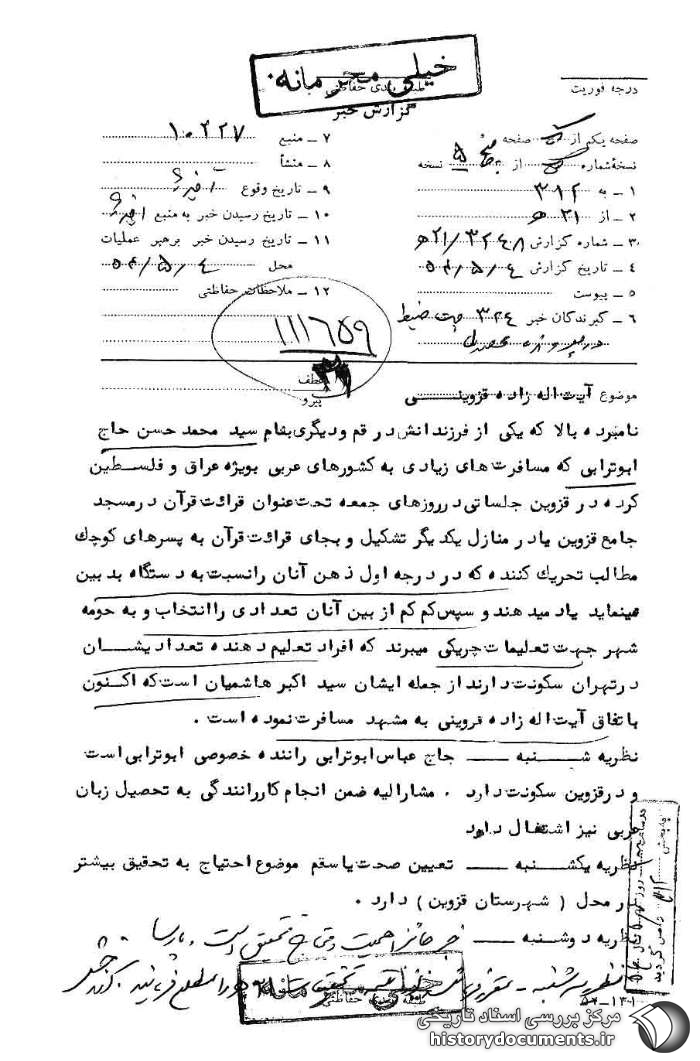 خیلی محرمانه
طبقه بندی حفاظتی
گزارش خبر
درجه فوریت
صفحه یکم از صفحه
نسخه شماره از ۵ نسخه
۱ ـ به ۳۱۲
۲ ـ از ۲۱ ه‍
۳ ـ شماره گزارش ۳۲۴۰۸ / ۲۱ه‍
۴ ـ تاریخ گزارش ۵۲/۵/۴
۵ ـ پیوست
۶ ـ گیرندگان خبر ۳۲۴ جهت ضبط
در پرونده
۷ ـ منبع ۱۰۳۲۷
۸ ـ منشأ
۹ ـ تاریخ وقوع اخیراً
۱۰ ـ تاریخ رسیدن خبر به منبع اخیراً
۱۱ ـ تاریخ رسیدن خبر برهبر عملیات
محل ۵۲/۵/۴
۱۲ ـ ملاحظات حفاظتی
۱۱۱۶۵۹
عطف
پیرو
موضوع آیت اله زاده قزوینی
نامبرده بالا که یکی از فرزندانش در قم و دیگری بقام سید محمد حسن حاج
ابوترابی که مسافرت های زیادی به کشورهای عربی بویژه عراق و فلسطین
کرده در قزوین جلساتی در روزهای جمعه تحت عنوان قرائت قرآن در مسجد
جامع قزوین یا در منازل یکدیگر تشکیل و بجای قرائت قرآن به پسرهای کوچک
مطالب تحریک کننده که در درجه اول ذهن آنان را نسبت به دستگاه بدبین
مینماید یاد میدهند و سپس کم کم از بین آنان تعدادی را انتخاب و به حومه
شهر جهت تعلیمات چریکی میبرند که افراد تعلیم دهنده تعدادیشان
در تهران سکونت دارند از جمله ایشان سید اکبر هاشمیان است که اکنون
باتفاق آیت اله زاده قروینی به مشهد مسافرت نموده است .
نظریه شنبه ـــ حاج عباس ابوترابی راننده خصوصی ابوترابی است
و در قزوین سکونت دارد . مشارالیه ضمن انجام کار رانندگی به تحصیل زبان
عربی نیز اشتغال دارد
نظریه یکشنبه ـــ تعیین صحت یا سقم موضوع احتیاج به تحقیق بیشتر
در محل ( شهرستان قزوین ) دارد .
نظریه دوشنبه ـــ خبر حائز اهمیت و محتاج تحقیق است . پارسا
نظریه سه شنبه ـ
طبقه بندی حفاظتی
مرکز بررسی اسناد تاریخی
historydocuments.ir